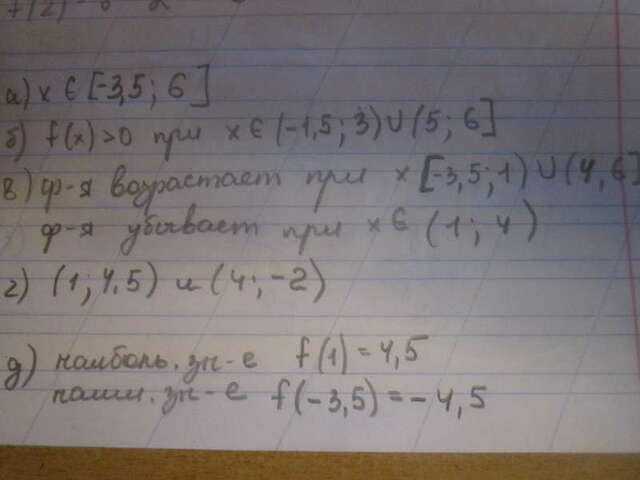 а) x ∈ [-3,5; 6]
б) f(x) > 0 при x ∈ (-1,5; 3) ∪ (5; 6]
в) ф-я возрастает при x [-3,5; 1) ∪ (4, 6]
ф-я убывает при x ∈ (1; 4)
г) (1; 4,5) и (4; -2)
д) наиболь. зн-е f(1) = 4,5
наим. зн-е f(-3,5) = -4,5